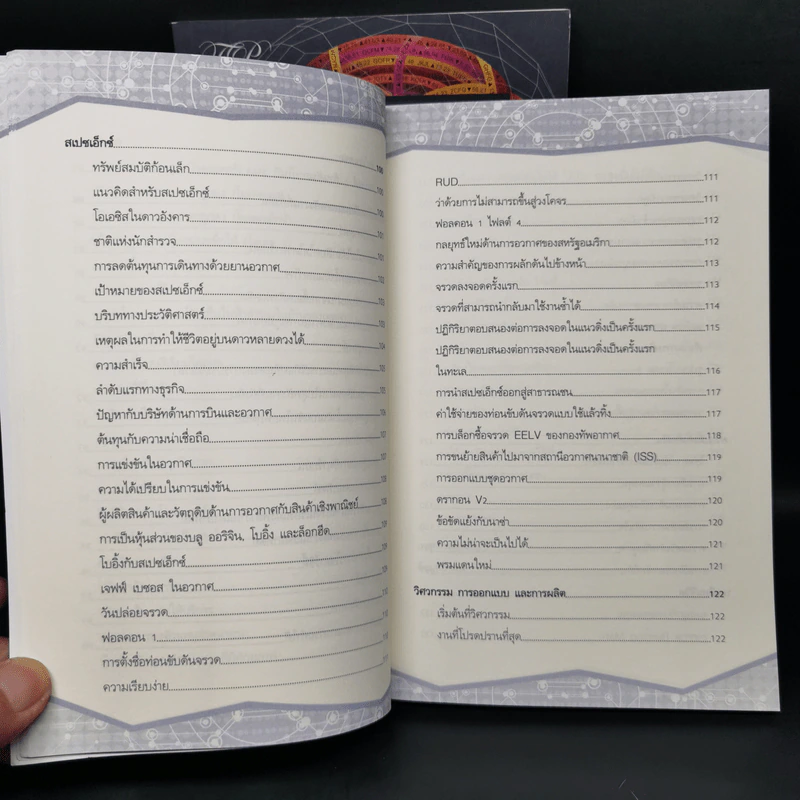 สเปซเอ็กซ์ 100
ทรัพย์สมบัติก้อนเล็ก 100
แนวคิดสำหรับสเปซเอ็กซ์ 100
โอเอซิสในดาวอังคาร 101
ชาติแห่งนักสำรวจ 101
การลดต้นทุนการเดินทางด้วยยานอวกาศ 101
เป้าหมายของสเปซเอ็กซ์ 102
บริบททางประวัติศาสตร์ 103
เหตุผลในการทำให้ชีวิตอยู่บนดาวหลายดวงได้ 104
ความสำเร็จ 105
ลำดับแรกทางธุรกิจ 105
ปัญหากับบริษัทด้านการบินและอวกาศ 106
ต้นทุนกับความน่าเชื่อถือ 107
การแข่งขันในอวกาศ 107
ความได้เปรียบในการแข่งขัน 108
ผู้ผลิตสินค้าและวัตถุดิบด้านการอวกาศกับสินค้าเชิงพาณิชย์ 108
การเป็นหุ้นส่วนของบลู ออริจิน, โบอิ้ง และล็อกฮีด 108
โบอิ้งกับสเปซเอ็กซ์ 109
เจฟฟ์ เบซอส ในอวกาศ 109
วันปล่อยจรวด 110
ฟอลคอน 1 110
การตั้งชื่อท่อนขับดันจรวด 110
ความเรียบง่าย
RUD 111
ว่าด้วยการไม่สามารถขึ้นสู่วงโคจร 111
ฟอลคอน 1 ไฟลต์ 4 112
กลยุทธ์ใหม่ด้านการอวกาศของสหรัฐอเมริกา 112
ความสำคัญของการผลักดันไปข้างหน้า 113
จรวดลงจอดครั้งแรก 113
จรวดที่สามารถนำกลับมาใช้งานซ้ำได้ 114
ปฏิกิริยาตอบสนองต่อการลงจอดในแนวดิ่งเป็นครั้งแรก 115
ปฏิกิริยาตอบสนองต่อการลงจอดในแนวดิ่งเป็นครั้งแรก
ในทะเล 116
การนำสเปซเอ็กซ์ออกสู่สาธารณชน 117
ค่าใช้จ่ายของท่อนขับดันจรวดแบบใช้แล้วทิ้ง 117
การบล็อกซื้อจรวด EELV ของกองทัพอากาศ 118
การขนย้ายสินค้าไปมาจากสถานีอวกาศนานาชาติ (ISS) 119
การออกแบบชุดอวกาศ 119
ดรากอน V2 120
ข้อขัดแย้งกับนาซ่า 120
ความไม่น่าจะเป็นไปได้ 121
พรมแดนใหม่ 121
วิศวกรรม การออกแบบ และการผลิต 122
เริ่มต้นที่วิศวกรรม 122
งานที่โปรดปรานที่สุด 122